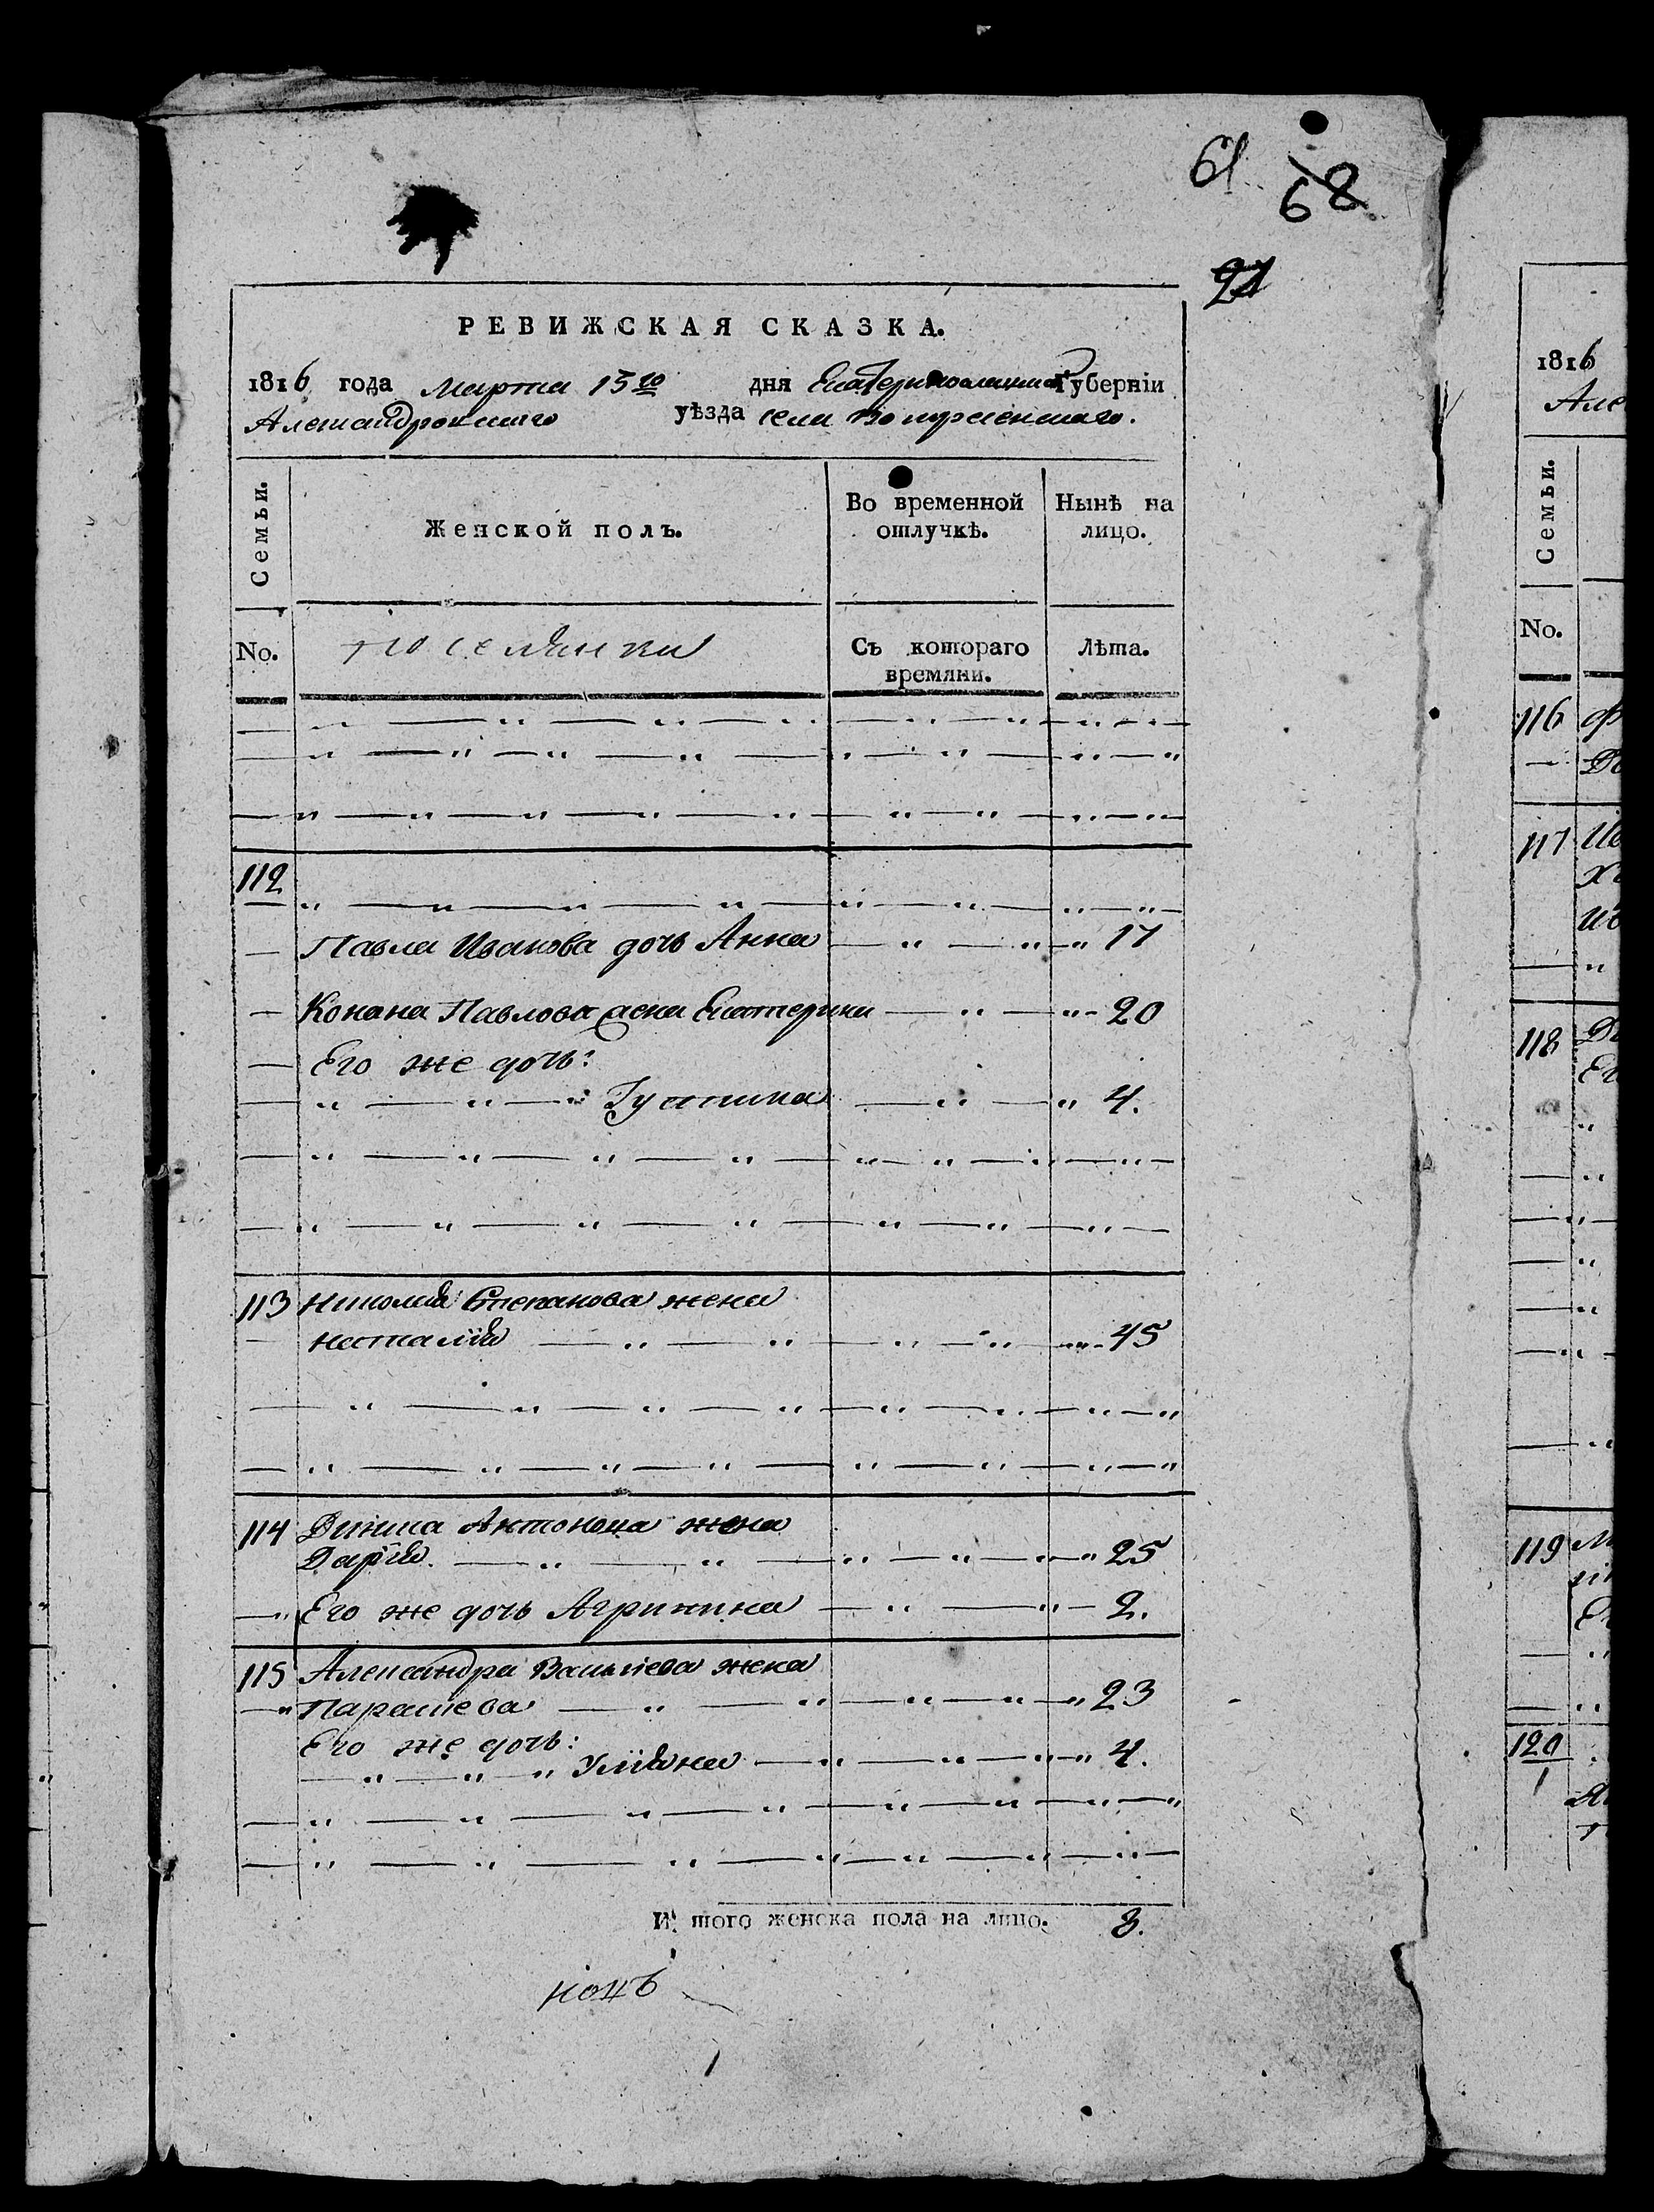 61 68
21
РЕВИЖСКАЯ СКАЗКА.
1816 года марта 15го дня Екатеринославской Губерніи
Александровскаго уѣзда села Вознесенскаго.
Семьи. Женской полъ. Во временной отлучкѣ. Нынѣ на лицо.
No. поселянки Съ котораго времяни. Лѣта.
112
Павла Иванова дочь Анна 17
Конона Павлова жена Екатерина 20
Его же дочь:
Густина 4.
113 Николая Степанова жена
наталїя 45
114 Дениса Антонова жена
Дарїя. 25
Его же дочь Агрипина 2.
115 Александра Васильева жена
Парасѣева 23
Его же дочь:
Улїяна 4.
И того женска пола на лицо. 8.
1816
Але
Семьи.
No.
116
117
118
119
120